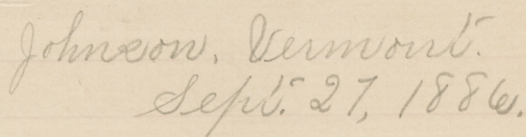 Johnson, Vermont.
Sept. 27, 1886.